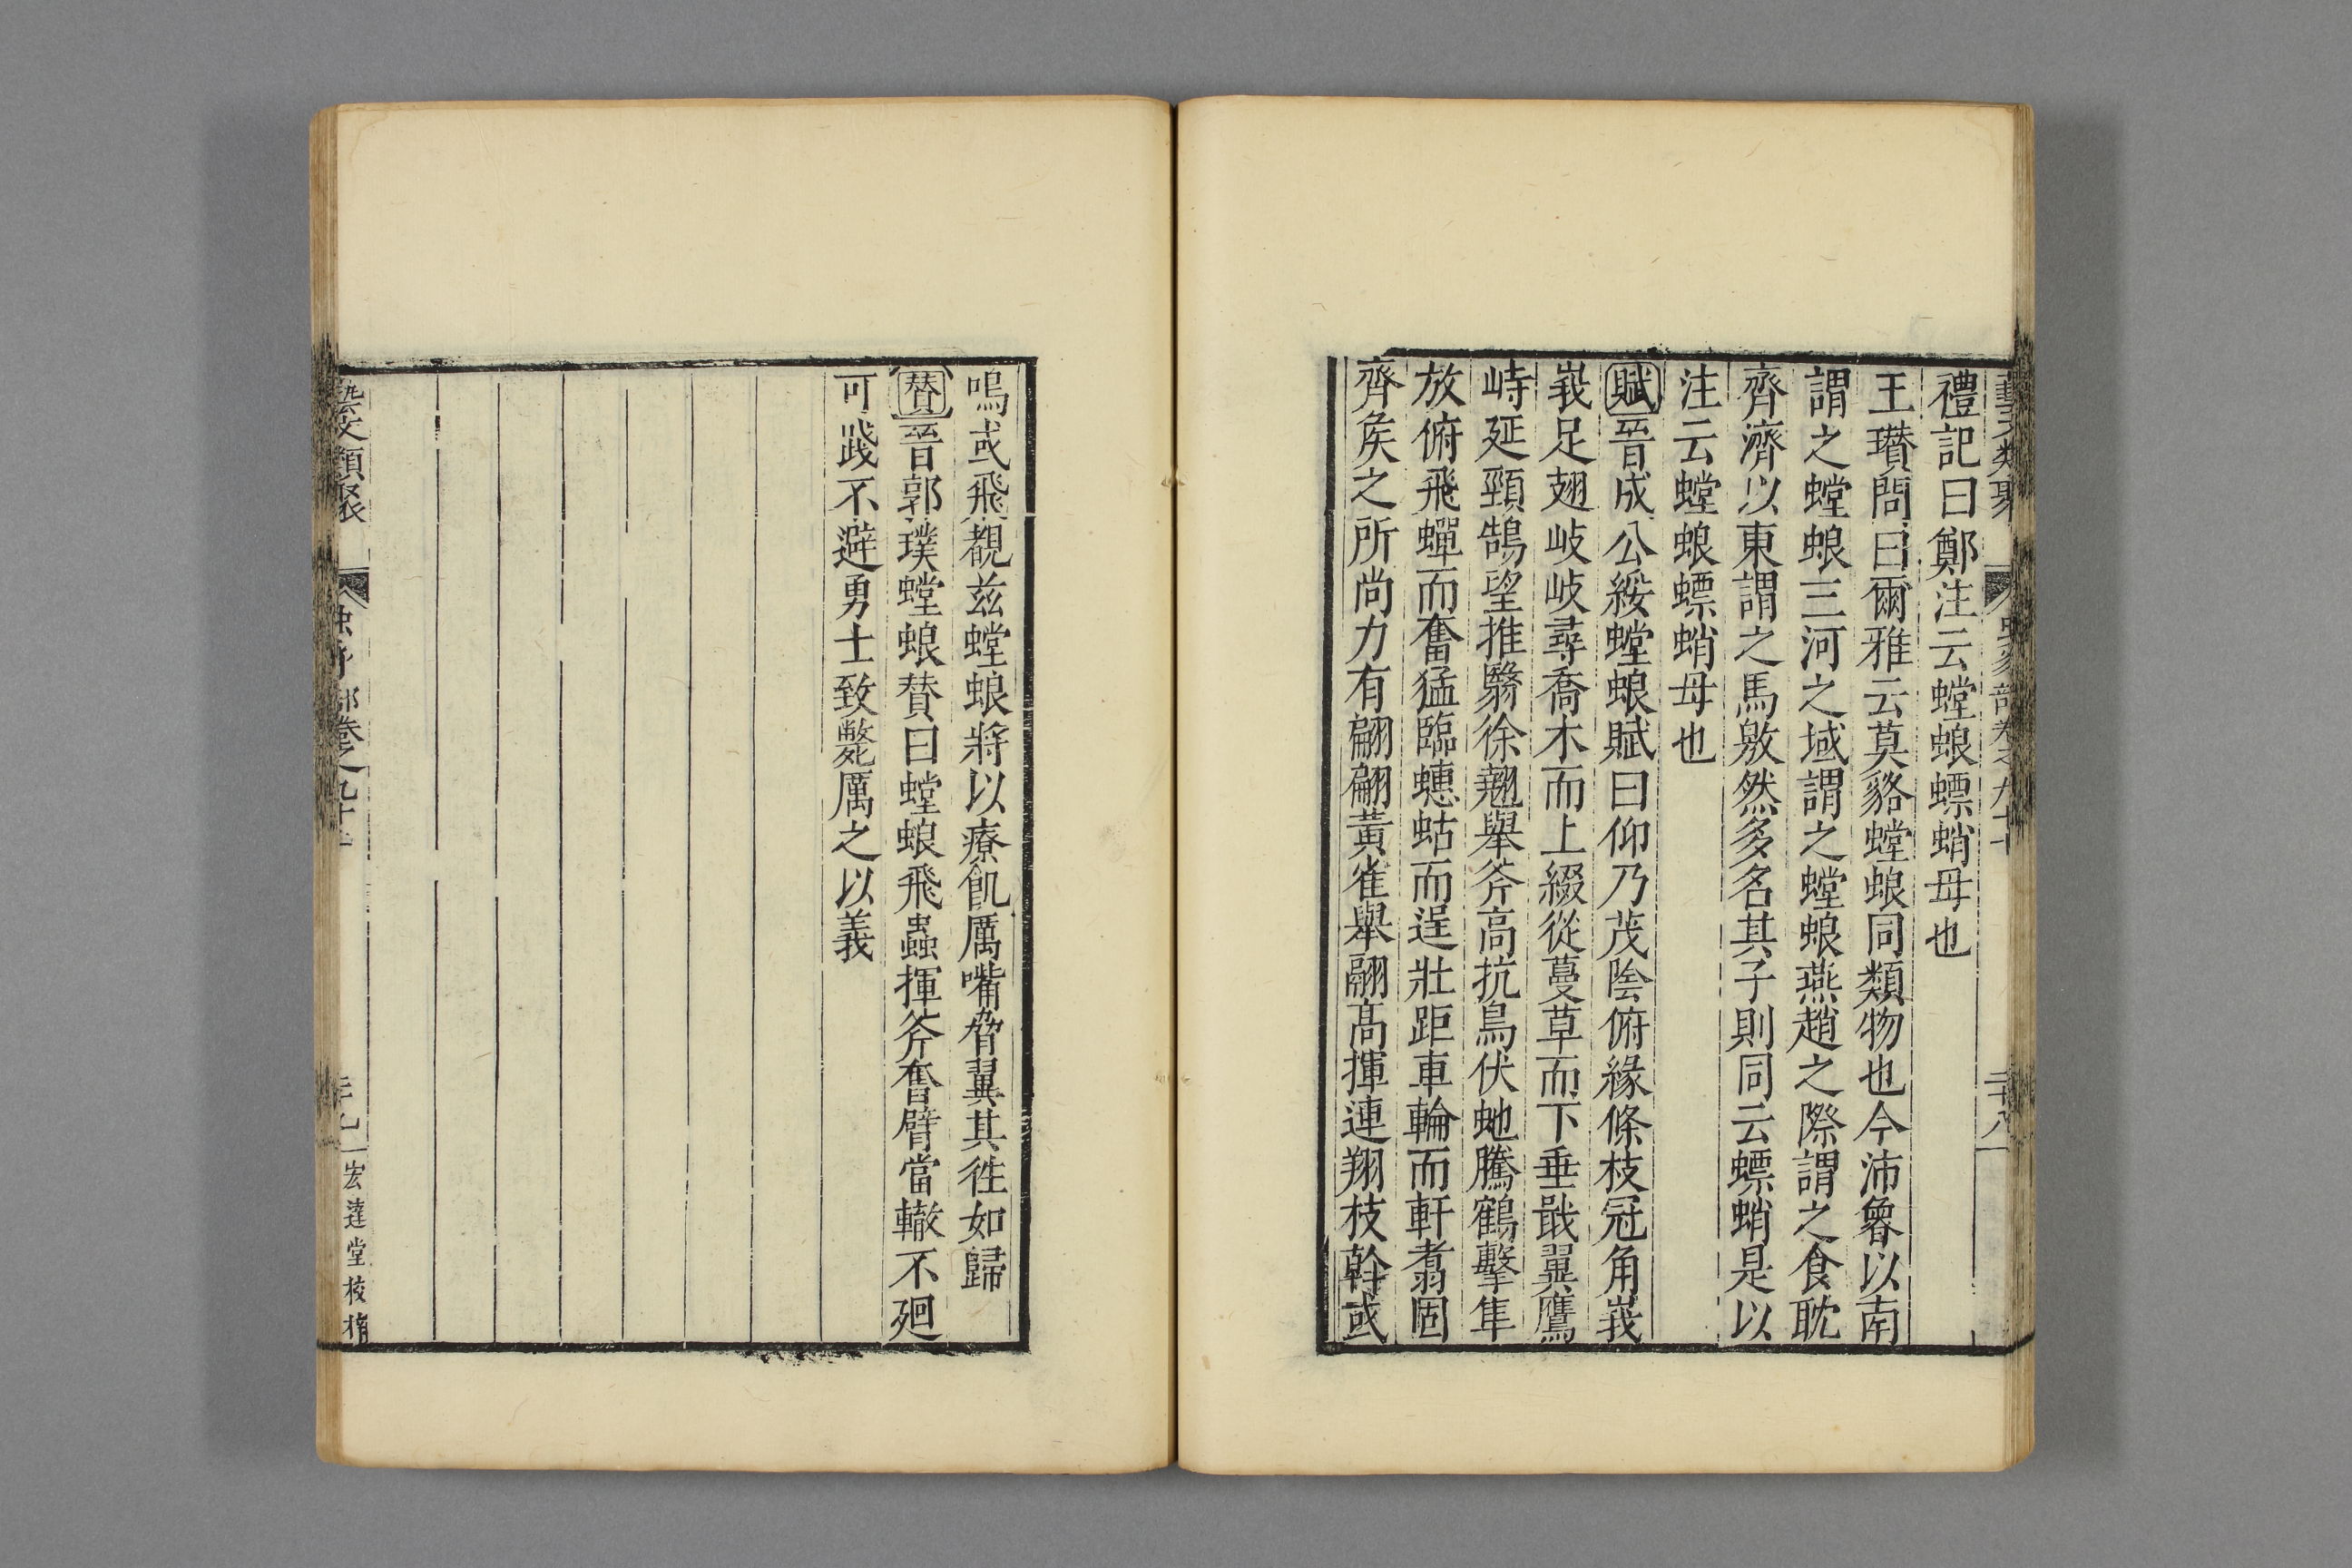 藝文類聚 虫豸部卷之九十七 二十八
禮記曰鄭注云螳蜋螵蛸母也
王瓚問曰爾雅云莫貉螳蜋同類物也今沛魯以南
謂之螳蜋三河之域謂之螳蜋燕趙之際謂之食耽
齊濟以東謂之馬敫然多名其子則同云螵蛸是以
注云螳蜋螵蛸母也
賦晉成公綏螳蜋賦曰仰乃茂陰俯緣條枝冠角峩
峩足翅岐岐尋喬木而上綴從蔓草而下垂戢翼鷹
峙延頸鵠望推翳徐翹舉斧高抗鳥伏虵騰鶴擊隼
放俯飛蟬而奮猛臨蟪蛄而逞壯距車輪而軒翥固
齊矦之所尚力有翩翩黃雀舉翮高揮連翔枝幹或
鳴或飛覩兹螳蜋將以療飢厲嘴脅翼其徃如歸
賛晉郭璞螳蜋賛曰螳蜋飛蟲揮斧奮臂當轍不廻
可踐不避勇士致斃厲之以義
藝文類聚 虫豸部卷之九十七 宏達堂校槧